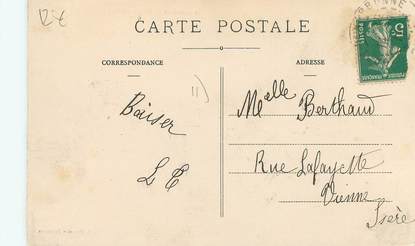 CARTE POSTALE
CORRESPONDANCE
ADRESSE
Baiser
L E
Melle Berthaud
Rue Lafayette
Vienne
Isère
5c
POSTES